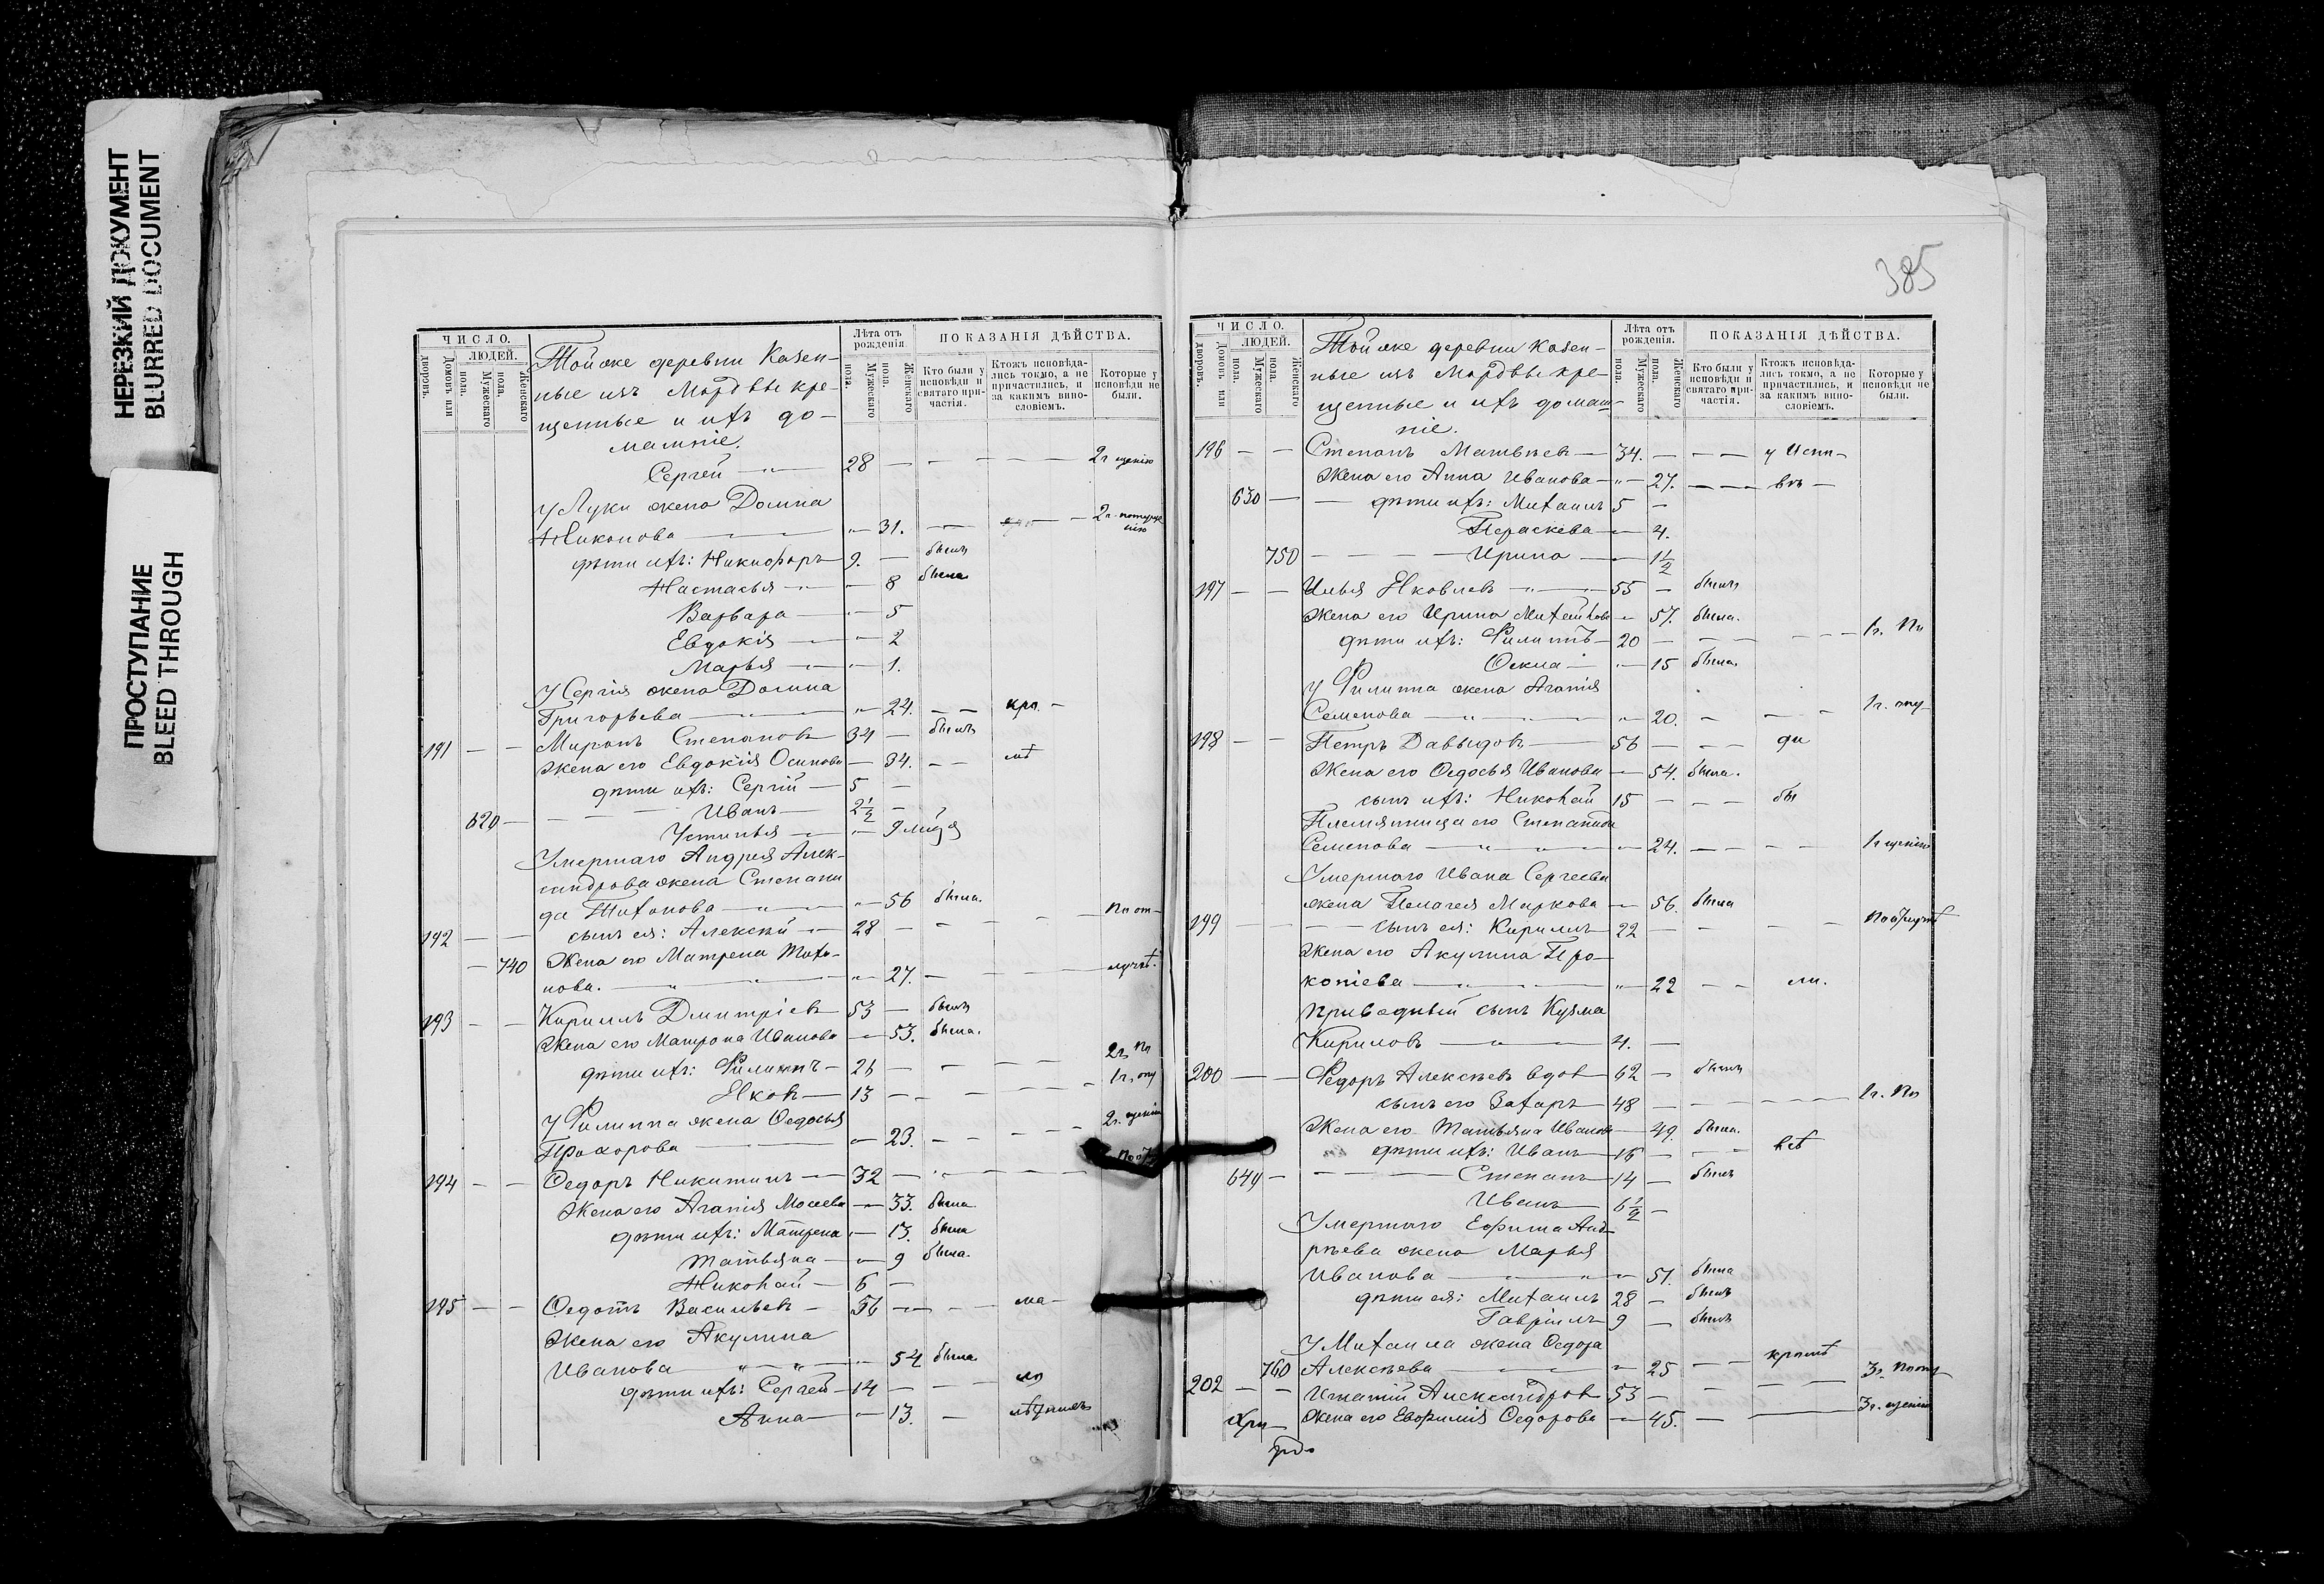 НЕРЕЗКИЙ ДОКУМЕНТ
BLURRED DOCUMENT
ПРОСТУПАНИЕ
BLEED THROUGH
ЧИСЛО.
ЛЮДЕЙ.
Домовъ или дворовъ.
Мужескаго пола.
Женскаго пола.
Той же деревни Казен-
ные изъ Мордвы кре-
щенные и ихъ до-
машніе.
Лѣта отъ рожденія
Мужескаго пола.
Женскаго пола.
ПОКАЗАНІЯ ДѢЙСТВА.
Кто были у исповѣди и святаго при-частія.
Ктожъ исповѣда-лись токмо, а не причастились, и за какимъ вино-словіемъ.
Которые у исповѣди не были.
Сергей — 28 — — — — 2 г щенію
У Луки жена Домна
Никонова — 31. — —
дѣти ихъ: Никифоръ 9. — былъ
Настасья — 8 была
Варвара — 5
Евдокія — 2
Марья — 1.
У Сергія жена Домна
Григорьева — 24. — — кро. —
191 — — Миронъ Степановъ 34 — былъ
Жена его Евдокія Осипова — 34. — — мѣ
дѣти ихъ: Сергій — 5 —
620 — — Иванъ 2½ —
Устинья — 9 мѣсяц
Умершаго Андрея Алек-
сандрова жена Степани
да Титонова — 56 была.
192 — — сынъ ея: Алексѣй — 28 — — — — По от-
— 740 Жена его Матрена Тихо-
нова. — 27. — — — лучкѣ.
193 — — Кириллъ Дмитріевъ 53 — былъ
Жена его Матрона Иванова — 53. была.
дѣти ихъ: Филиппъ — 26 — — — — 2 г. По
Яковъ — 13 — — — — 1 г. опу
У Филиппа жена Ѳедосья
Прохорова — 23. — — — — 2 г. щенію
194 — — Ѳедоръ Никитинъ — 32 — — — —
Жена его Агапія Мосеева — 33. была
дѣти ихъ: Матрена — 13. была
Татьяна — 9 была.
Николай — 6 —
195 — — Ѳедотъ Васильевъ — 56 — — — ма —
Жена его Акулина
Иванова — 54 была
дѣти ихъ: Сергей — 14 — — ло
Анна — 13. —
385
ЧИСЛО.
ЛЮДЕЙ.
Домовъ или дворовъ.
Мужескаго пола.
Женскаго пола.
Той же деревни Казен-
ные изъ Мордвы кре-
щенные и ихъ домаш-
ніе.
Лѣта отъ рожденія.
Мужескаго пола.
Женскаго пола.
ПОКАЗАНІЯ ДѢЙСТВА.
Кто были у исповѣди и святаго при-частія.
Ктожъ исповѣда-лись токмо, а не причастились, и за какимъ вино-словіемъ.
Которые у исповѣди не были.
196 — — Степанъ Матвѣевъ — 34. — — — у Испо-
Жена его Анна Иванова — 27. — — — вѣ —
630 — — дѣти ихъ: Михаилъ 5 —
Параскева — 4.
750 — — — Ирина — 1½
197 — — Илья Яковлевъ — 55 — былъ
Жена его Ирина Михайлова — 57. была.
дѣти ихъ: Филиппъ — 20 — — — — 1 г. По
Оекла — 15 была.
У Филиппа жена Агапія
Семенова — 20. — — — 1 г. опу-
198 — — Петръ Давыдовъ — 56 — — — ди
Жена его Ѳедосья Иванова — 54. была.
сынъ ихъ: Николай 15 — — — бы
Племянница его Степанида
Семенова — 24. — — — — 1 г щенію
Умершаго Ивана Сергеева
жена Пелагея Маркова — 56. была
199 — — сынъ ея: Кириллъ 22 — — — — По отлучкѣ
Жена его Акулина Про-
копіева — 22 — — ли.
приводный сынъ Кузма
Кириловъ — 4. —
200 — — Ѳедоръ Алексѣевъ вдов 62 — былъ
сынъ его Захаръ — 48 — — — — 2 г. По
Жена его Татьяна Иванова — 49. была.
дѣти ихъ: Иванъ — 16 — — —
640 — — Степанъ — 14 — былъ
Иванъ 6½ —
Умершаго Ефима Анд-
рѣева жена Марья
Иванова — 51. была
дѣти ея: Михаилъ 28 — былъ
Гавріилъ 9 — былъ
У Михаила жена Ѳедора
760 Алексѣева — 25 — —
202 — — Игнатій Александровъ 53 — — — 3 г. По оп
Жена его Евфимія Ѳедорова — 45. — — 3 г. щенію